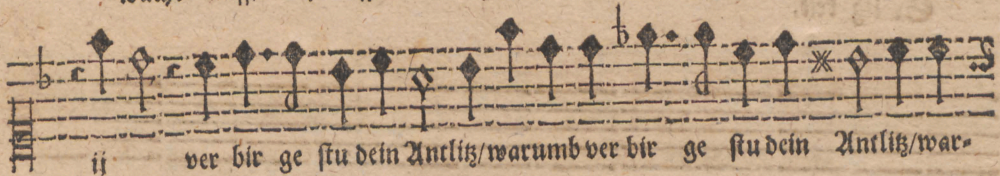 ij ver bir ge ſtu dein Antlitz/warumb ver bir ge ſtu dein Antlitz/war⸗